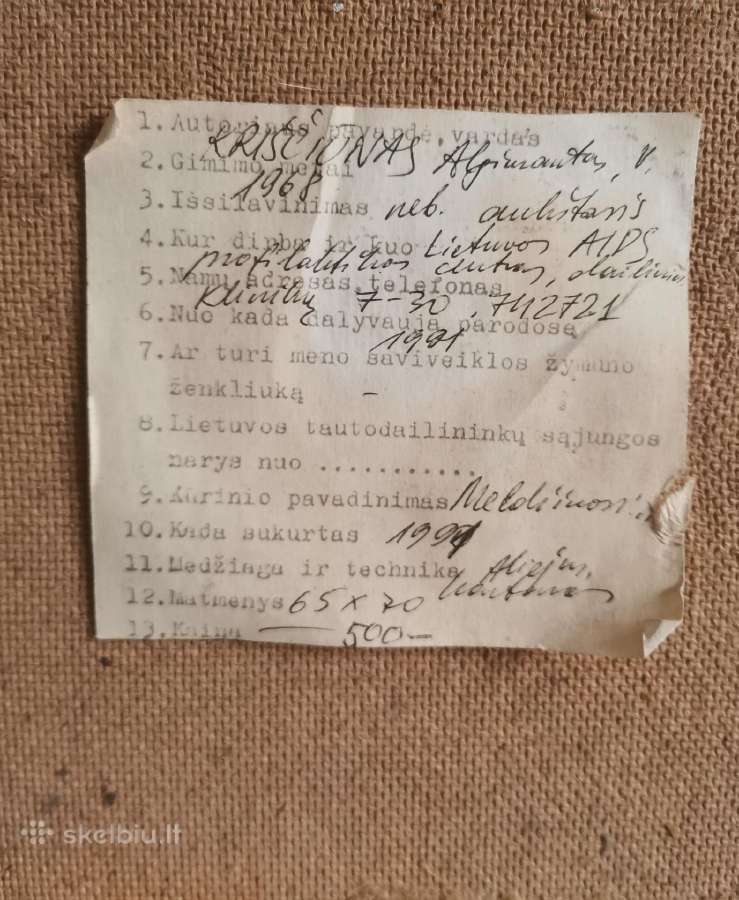 1. Autoriaus pavardė, vardas
KRIŠČIŪNAS Algimantas, V.
2. Gimimo metai
1968
3. Išsilavinimas neb. aukštasis
4. Kur dirba ir kuo Lietuvos AIDS
profilaktikos centras, dailininkas
5. Namų adresas, telefonas
Klinikų 7-30, 742721
6. Nuo kada dalyvauja parodose
1991
7. Ar turi meno saviveiklos žymūno
ženkliuką –
8. Lietuvos tautodailininkų sąjungos
narys nuo ...........
9. Kūrinio pavadinimas
10. Kada sukurtas 1991
11. Medžiaga ir technika Aliejus,
kartonas
12. Matmenys 65 x 70
13. Kaina — 500-
skelbiu.lt